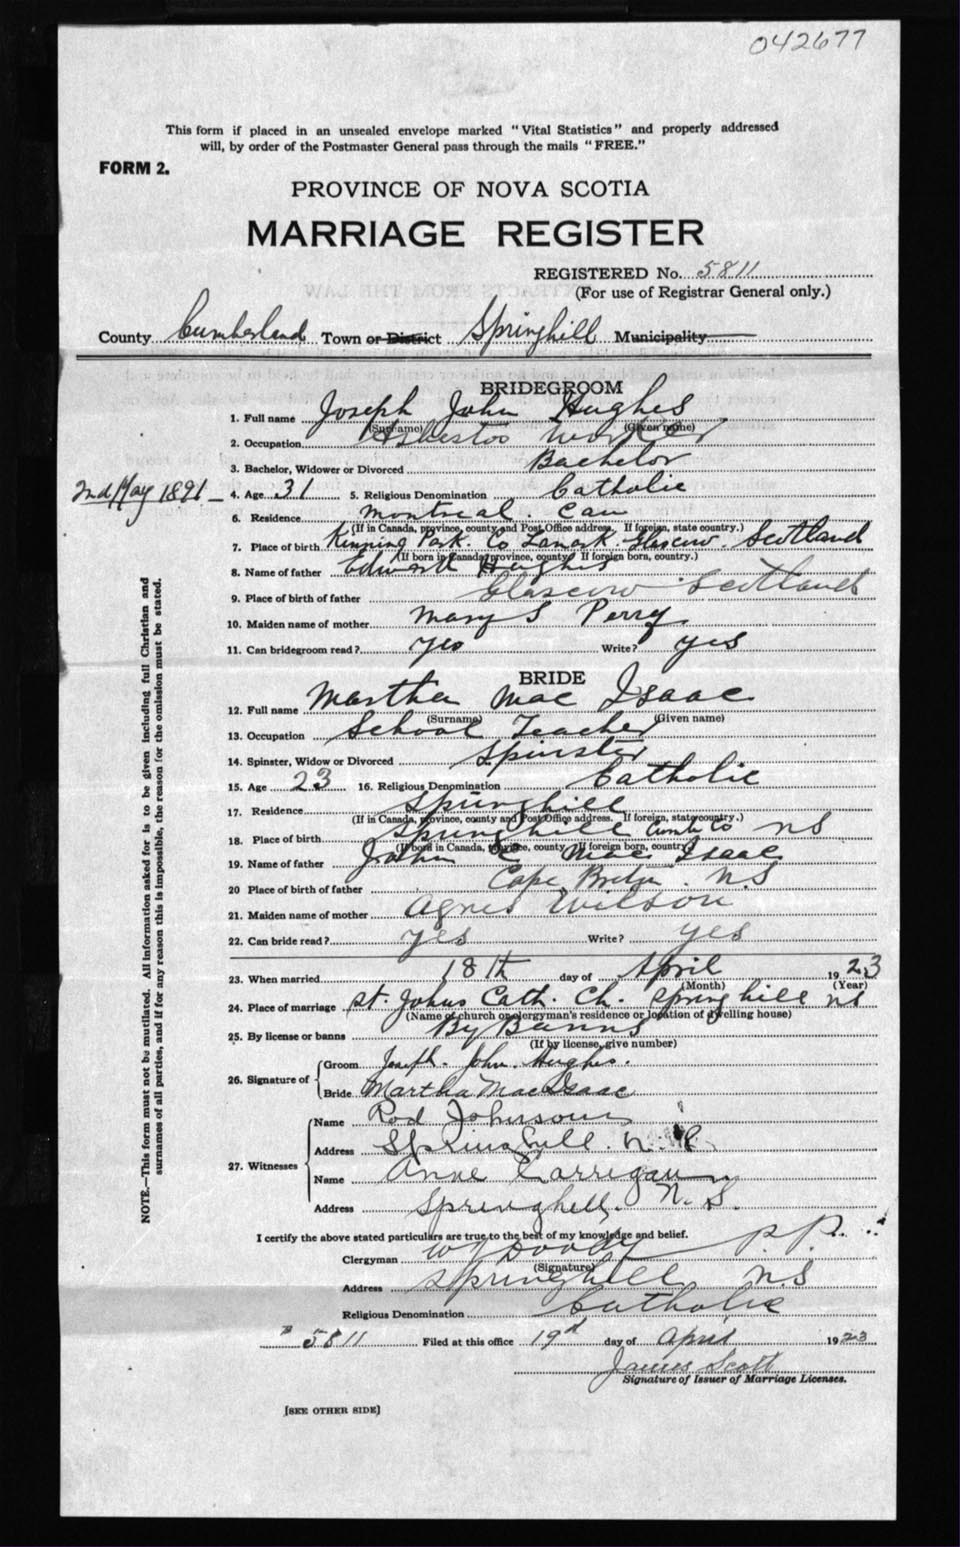 042677
This form if placed in an unsealed envelope marked "Vital Statistics" and properly addressed
will, by order of the Postmaster General pass through the mails "FREE."
FORM 2.
PROVINCE OF NOVA SCOTIA
MARRIAGE REGISTER
REGISTERED No. 5811
(For use of Registrar General only.)
County Cumberland Town or District Springhill Municipality
BRIDEGROOM
1. Full name Joseph John Hughes
(Surname) (Given name)
2. Occupation Asbestos Worker
3. Bachelor, Widower or Divorced Bachelor
2nd May 1891 - 4. Age 31 5. Religious Denomination Catholic
6. Residence Montreal Can
(If in Canada, province, county and Post Office address. If foreign, state country.)
7. Place of birth Kinning Park. Co Lanark. Glascow. Scotland
(If born in Canada province, county If foreign born, country.)
8. Name of father Edward Hughes
9. Place of birth of father Glascow Scotland
10. Maiden name of mother Mary S Perry
11. Can bridegroom read? yes Write? yes
BRIDE
12. Full name Martha Mac Isaac
(Surname) (Given name)
13. Occupation School Teacher
14. Spinster, Widow or Divorced Spinster
15. Age 23 16. Religious Denomination Catholic
17. Residence Springhill
(If in Canada, province, county and Post Office address. If foreign, state country.)
18. Place of birth Springhill Cumb Co NS
(If born in Canada, province, county If foreign born, country)
19. Name of father John Mac Isaac
20 Place of birth of father Cape Breton. N.S
21. Maiden name of mother Agnes Wilson
22. Can bride read? yes Write? yes
23. When married 18th day of April 1923
(Month) (Year)
24. Place of marriage St. Johns Cath. Ch. Springhill NS
(Name of church or clergyman's residence or location of dwelling house)
25. By license or banns By Banns
(If by license, give number)
26. Signature of Groom Joseph. John. Hughes.
Bride Martha MacIsaac
27. Witnesses
Name Rod Johnson
Address Springhill. N.
Name Anne Carrigan
Address Springhill. N. S.
I certify the above stated particulars are true to the best of my knowledge and belief.
Clergyman P. P.
(Signature)
Address Springhill NS
Religious Denomination Catholic
5811 Filed at this office 19th day of April 1923
James Scott
Signature of Issuer of Marriage Licenses.
[SEE OTHER SIDE]
NOTE.—This form must not be mutilated. All information asked for is to be given including full Christian and
surnames of all parties, and if for any reason this is impossible, the reason for the omission must be stated.